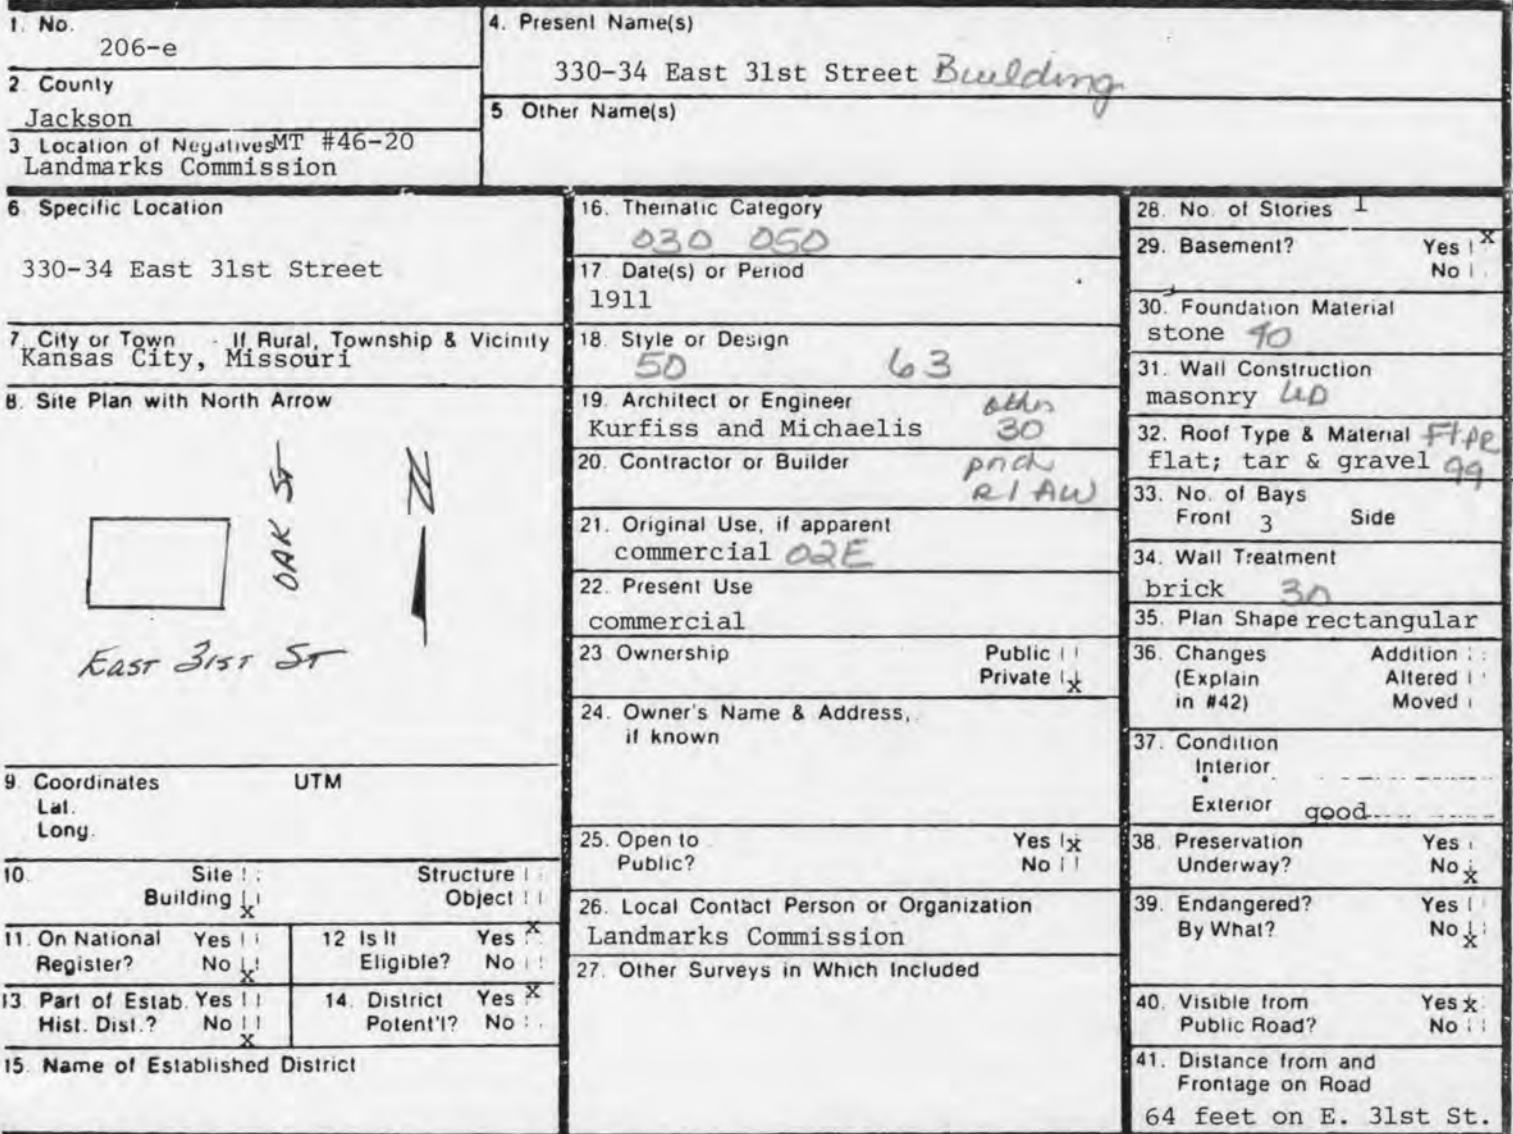 1. No.
206-e
2. County
Jackson
3 Location of Negatives MT #46-20
Landmarks Commission
4. Present Name(s)
330-34 East 31st Street Building
5 Other Name(s)
6. Specific Location
330-34 East 31st Street
7. City or Town If Rural, Township & Vicinity
Kansas City, Missouri
8. Site Plan with North Arrow
OAK ST
N
EAST 31ST ST
9. Coordinates UTM
Lat.
Long.
10. Site Structure
Building x Object
11. On National Yes
Register? No x
12 Is It Yes x
Eligible? No
13. Part of Estab. Yes
Hist. Dist.? No x
14. District Yes x
Potent'l? No
15. Name of Established District
16. Thematic Category
030 050
17. Date(s) or Period
1911
18. Style or Design
50 63
19. Architect or Engineer
Kurfiss and Michaelis 30
20. Contractor or Builder
21. Original Use, if apparent
commercial 02E
22. Present Use
commercial
23 Ownership Public
Private x
24. Owner's Name & Address,
if known
25. Open to Yes x
Public? No
26. Local Contact Person or Organization
Landmarks Commission
27. Other Surveys in Which Included
28. No. of Stories 1
29. Basement? Yes x
No
30. Foundation Material
stone 40
31. Wall Construction
masonry
32. Roof Type & Material
flat; tar & gravel 99
33. No. of Bays
Front 3 Side
34. Wall Treatment
brick 30
35. Plan Shape rectangular
36. Changes Addition
(Explain Altered
in #42) Moved
37. Condition
Interior
Exterior good
38. Preservation Yes
Underway? No x
39. Endangered? Yes
By What? No x
40. Visible from Yes x
Public Road? No
41. Distance from and
Frontage on Road
64 feet on E. 31st St.